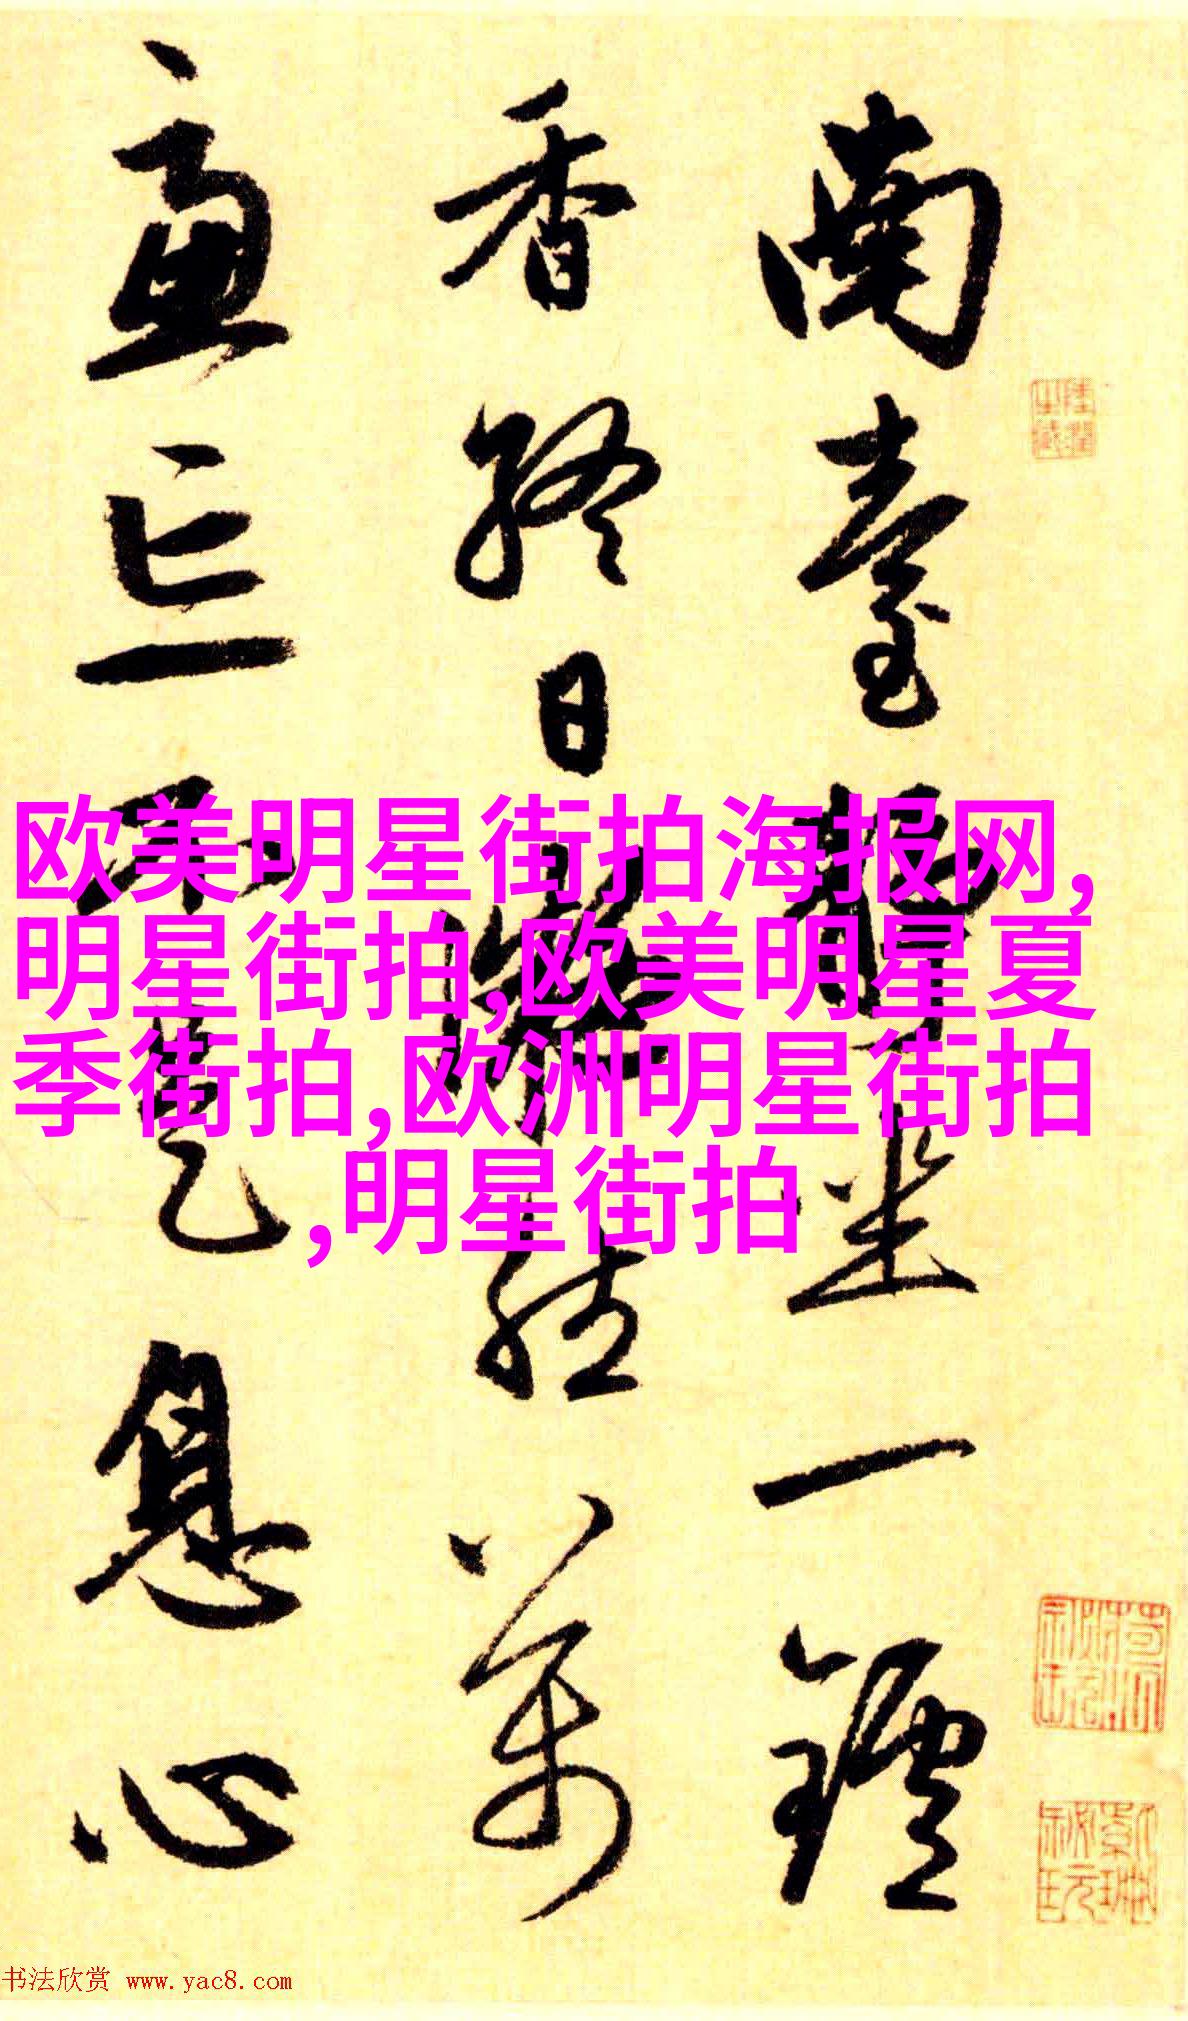 南臺静坐一鑪
香終日凝然萬
慮亡不是息心
欧美明星街拍海报网,
明星街拍,欧美明星夏
季街拍,欧洲明星街拍
,明星街拍
书法欣赏 www.yac8.com